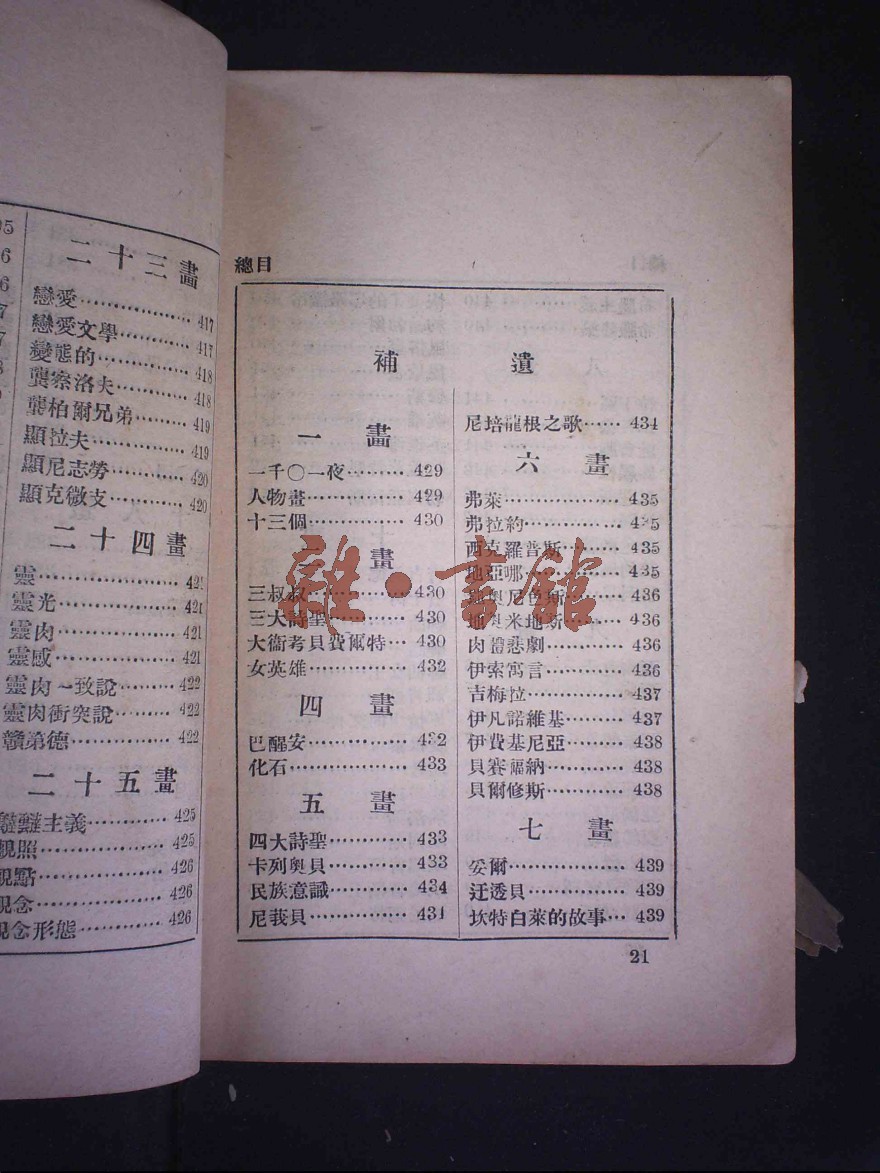 二十三畫
戀愛…………417
戀愛文學………417
變態的…………418
龔察洛夫………418
龔柏爾兄弟………419
顯拉夫…………419
顯尼志勞………420
顯克微支………420
二十四畫
靈……………421
靈光…………421
靈肉…………421
靈感…………421
靈肉一致說………422
靈肉衝突說………422
贛弟德…………422
二十五畫
主義…………425
觀照…………425
觀點…………426
觀念…………426
觀念形態………426
總目
補遺
一畫
一千〇一夜………429
人物畫…………429
十三個…………430
畫
三叔叔…………430
三大詩聖………430
大衞考貝費爾特…430
女英雄…………432
四畫
巴醒安…………432
化石…………433
五畫
四大詩聖………433
卡列奧貝………433
民族意識………434
尼莪貝…………434
尼培龍根之歌……434
六畫
弗萊…………435
弗拉約…………435
西克羅普斯………435
地亞哪…………435
地奧尼色斯………436
地奧米地斯………436
肉體悲劇………436
伊索寓言………436
吉梅拉…………437
伊凡諾維基………437
伊費基尼亞………438
貝賽福納………438
貝爾修斯………438
七畫
妥爾…………439
迂透貝…………439
坎特白萊的故事…439
21
雜·書館